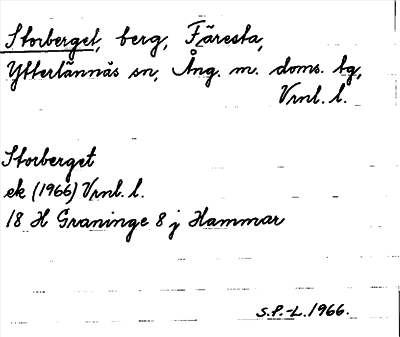 Storberget, berg, Färesta,
Ytterlännäs sn, Ång. m. doms. tg,
Vrnl. l.
Storberget
ek (1966) Vrnl. l.
18 H Graninge 8 j Hammar
S.P.-L. 1966.